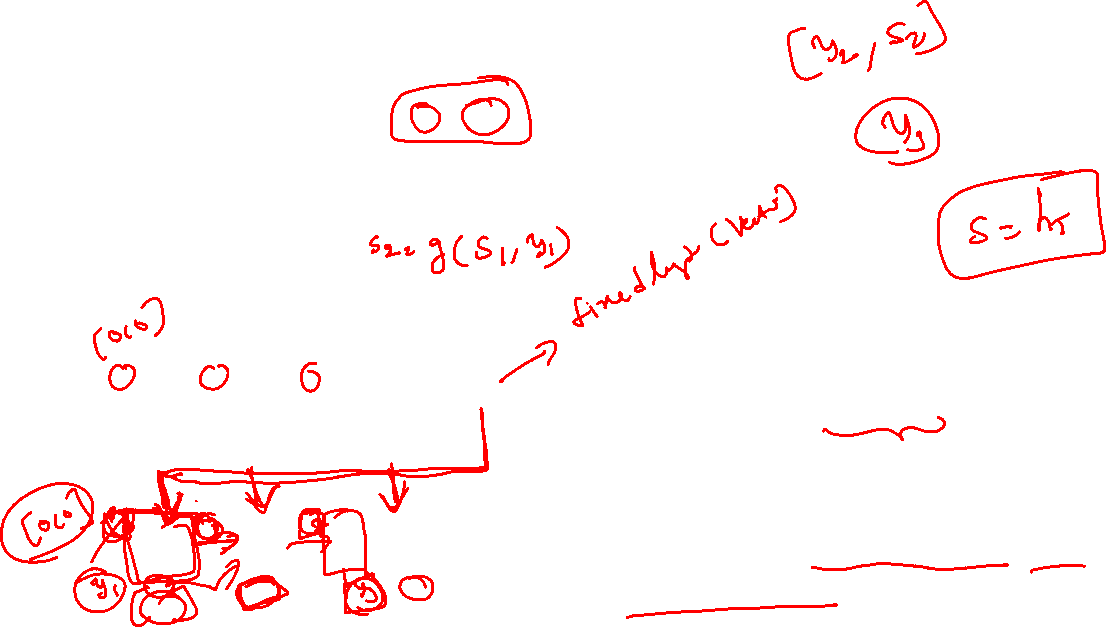 [y₂, S₂]
y₃
S = h_T
S₂ = g(S₁, y₁)
fixed length (vector)
[010]
[010]
y₁